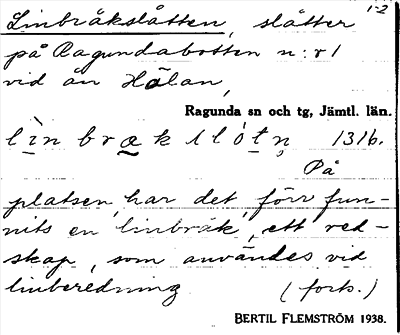 Linbråkslåtten, slåtter 1-2
på Ragundabotten n:r 1
vid ån Hölan,
Ragunda sn och tg, Jämtl. län.
1316.
På
platsen har det förr fun-
nits en linbråk, ett red-
skap, som användes vid
linberedning (forts.)
BERTIL FLEMSTRÖM 1938.